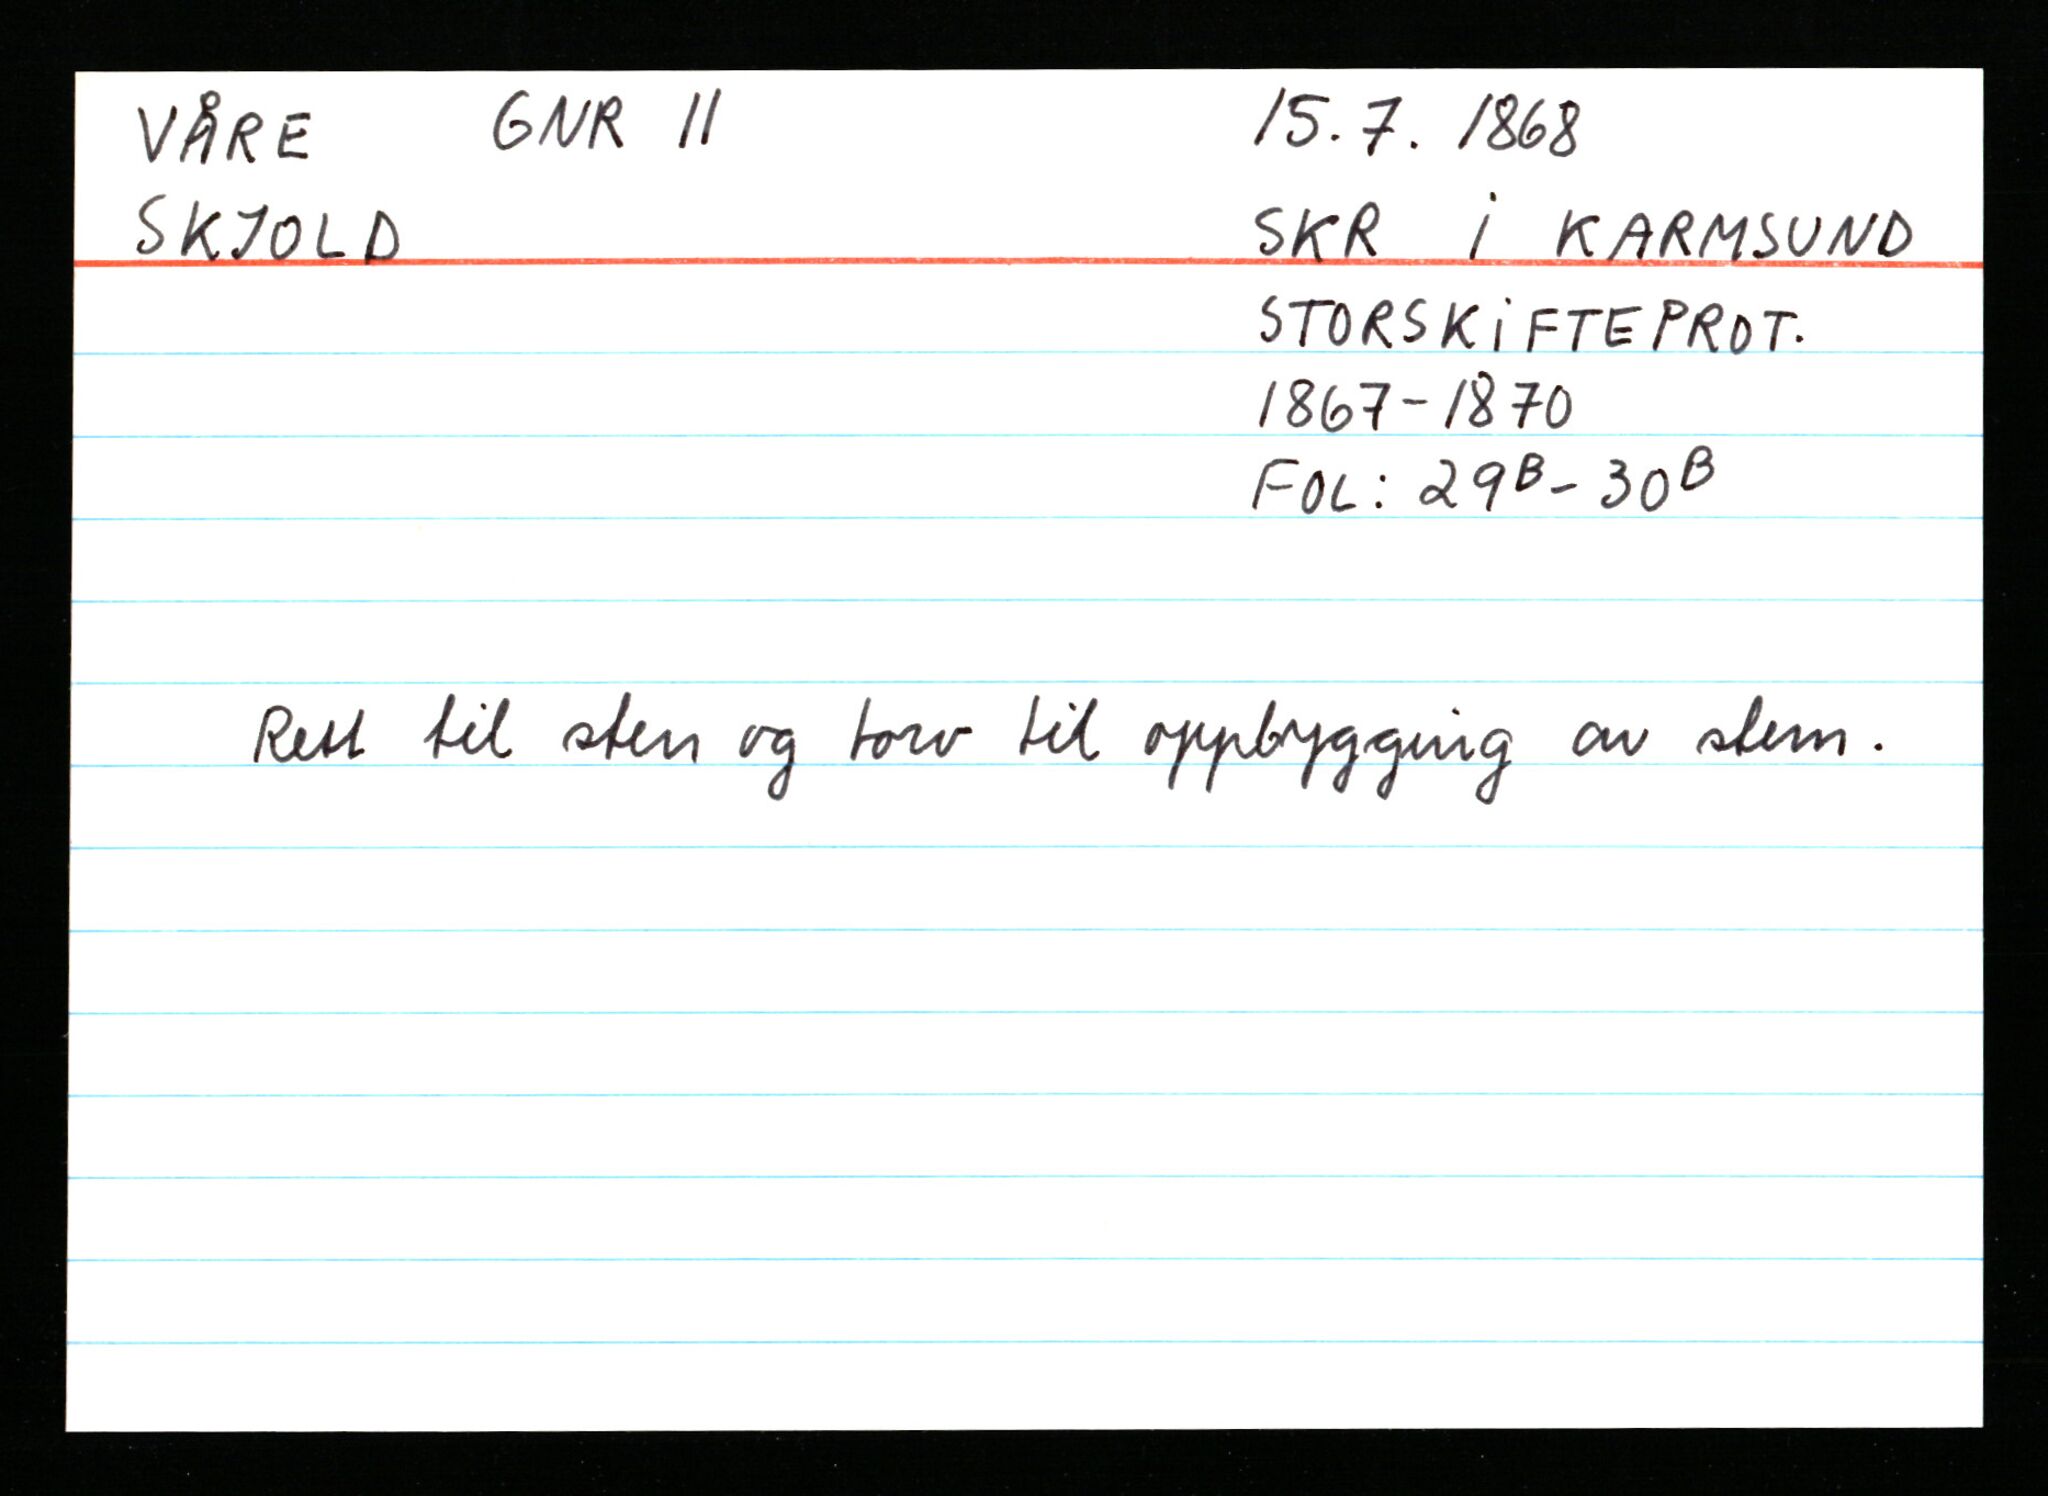 VÅRE GNR 11 15.7.1868
SKJOLD SKR i KARMSUND
STORSKiFTEPROT.
1867-1870
FOL: 29B - 30B
Rett til sten og torv til oppbygging av stem.